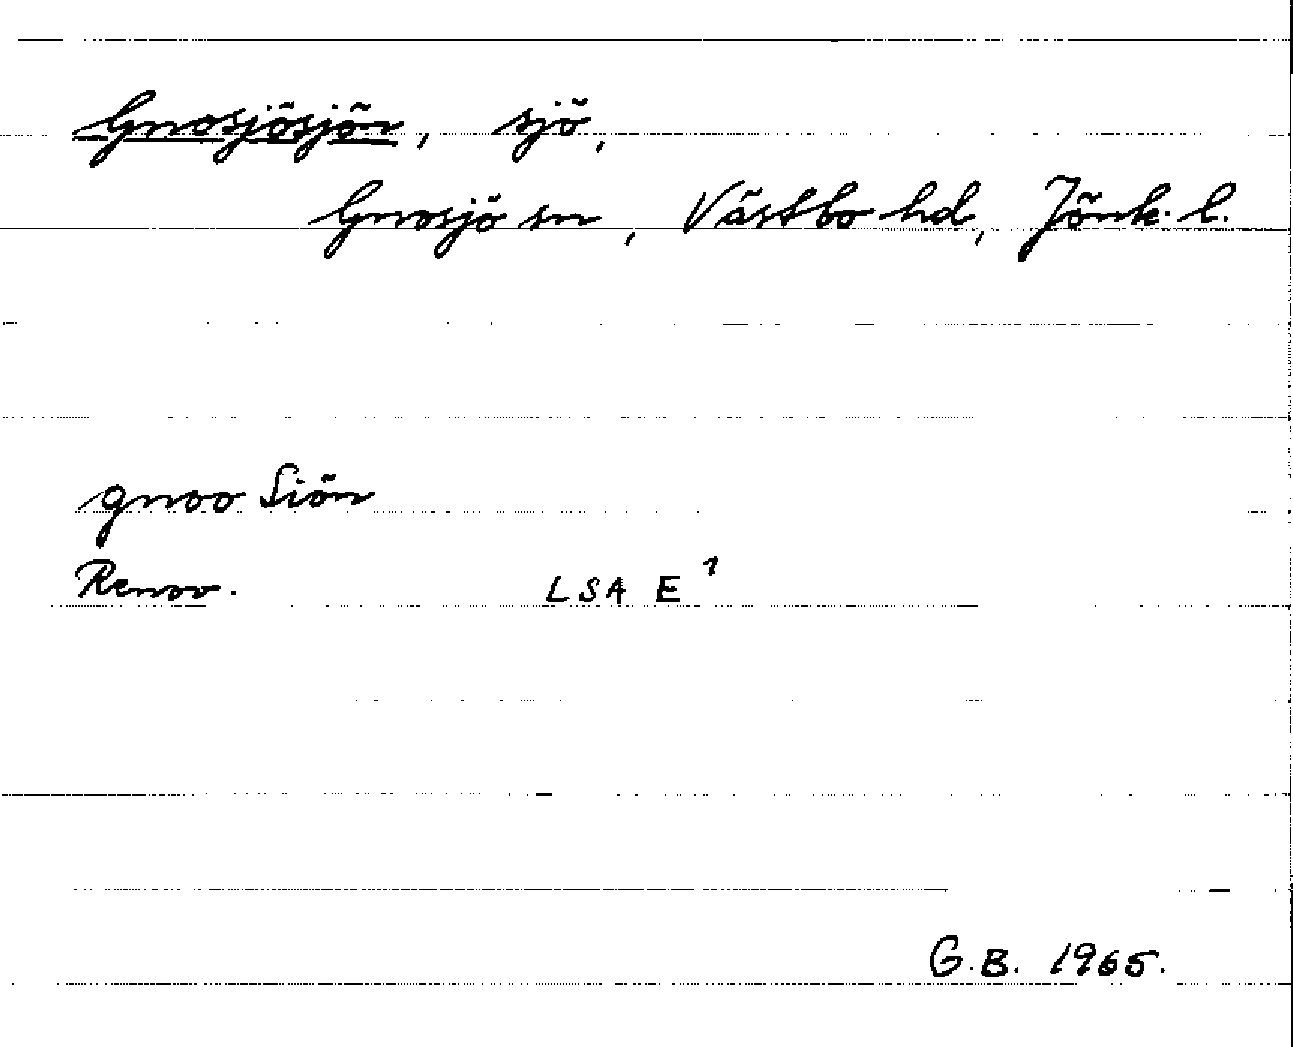 Gnosjösjön, sjö,
Gnosjö sn, Västbo hd, Jönk. l.
gnoo Siön
Renov. LSA E 1
G.B. 1965.